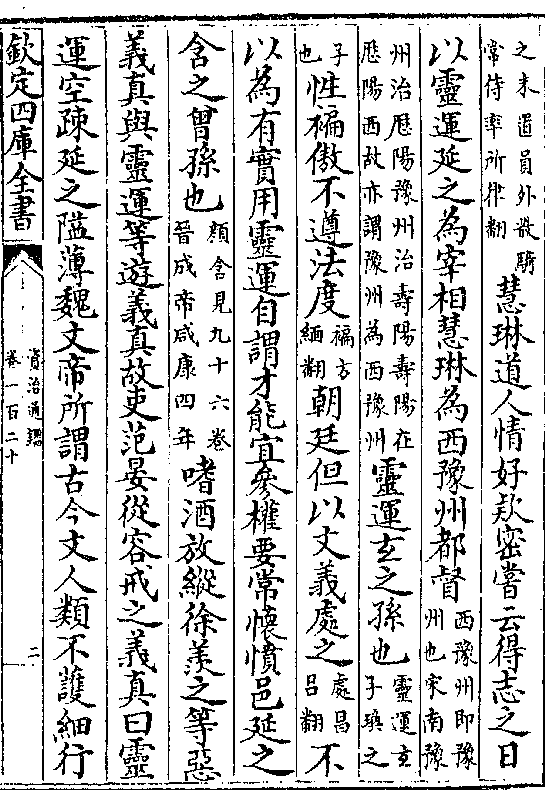 之未置員外散騎
常侍率所律翻
慧琳道人情好欵密嘗云得志之日
以靈運延之為宰相慧琳為西豫州都督
西豫州即豫
州也宋南豫
州治歷陽豫州治壽陽壽陽在
歷陽西故亦謂豫州為西豫州
靈運玄之孫也
靈運玄
子瑍之
子
也
性褊傲不遵法度
褊方
緬翻
朝廷但以文義處之
處昌
呂翻
不
以為有實用靈運自謂才能宜參權要常懷憤邑延之
含之曾孫也
顔含見九十六卷
晉成帝咸康四年
嗜酒放縱徐羨之等惡
義真與靈運等遊義真故吏范晏從容戒之義真曰靈
運空疎延之隘薄魏文帝所謂古今文人類不護細行
欽定四庫全書
資治通鑑
卷一百二十
二